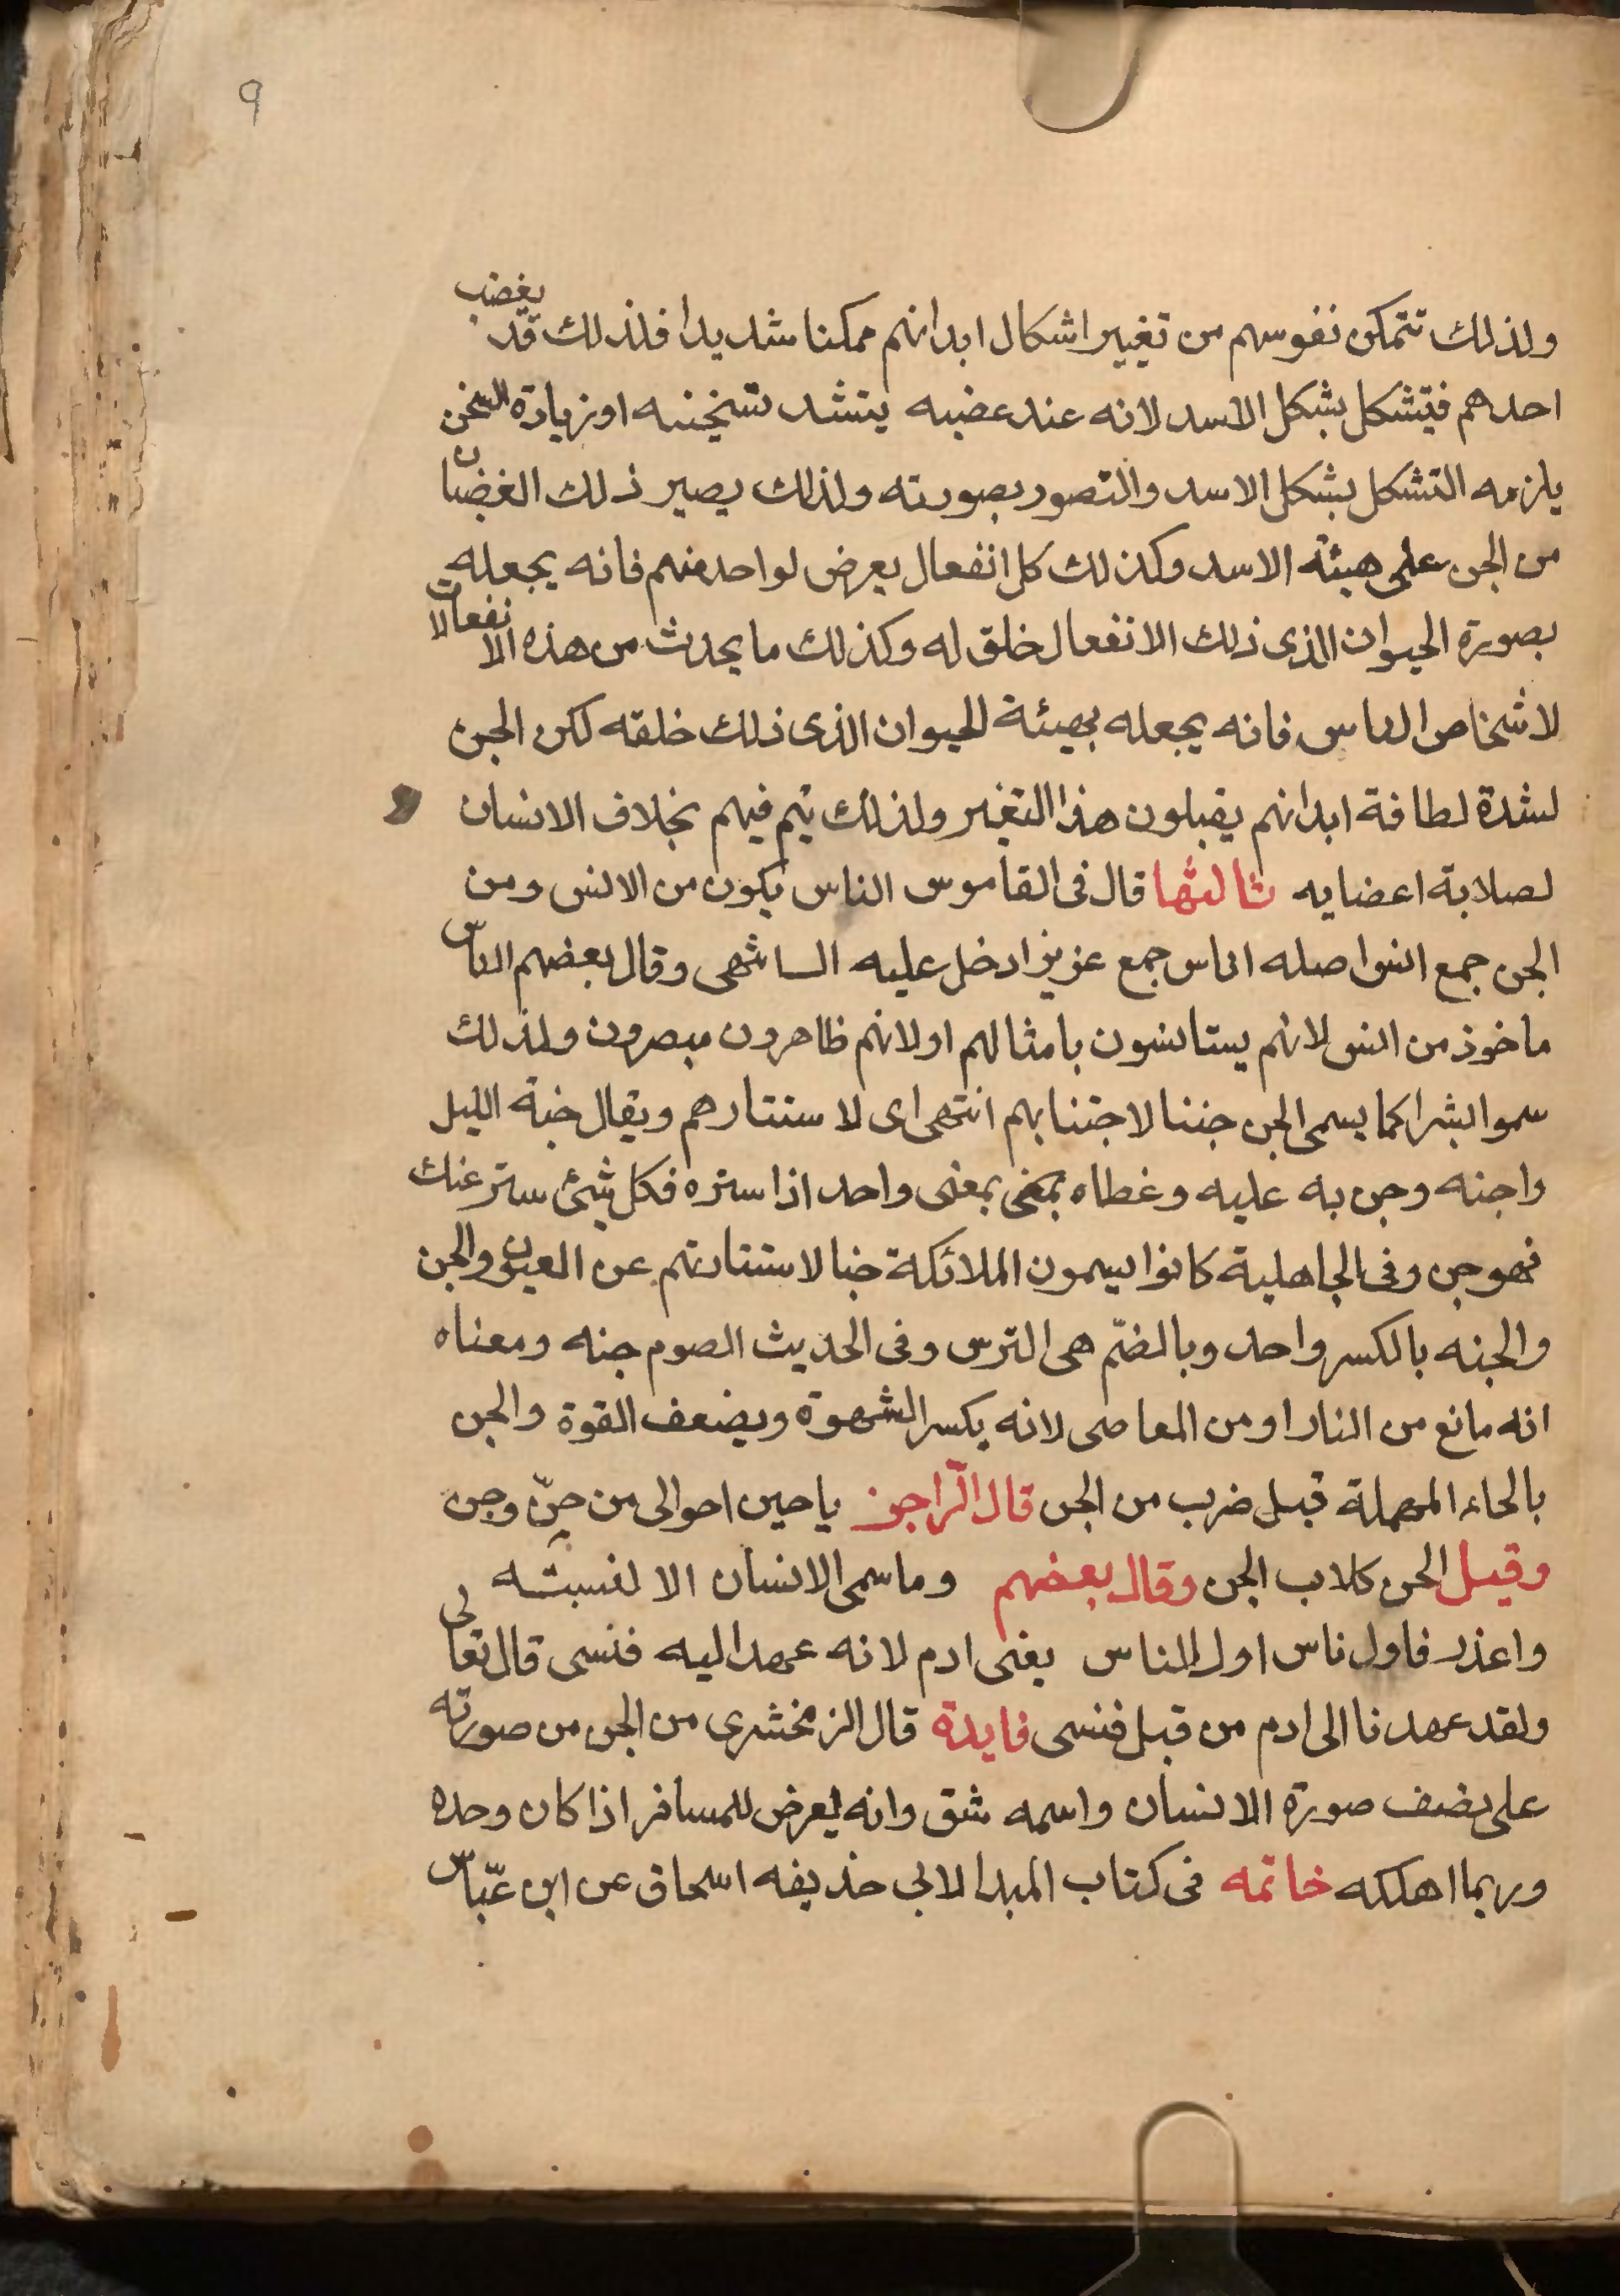 9
ولذلك تتمكن نفوسهم من تغيير اشكال ابدانهم تمكنا شديدا فلذلك قد يغضب
احدهم فيتشكل بشكل الاسد لانه عند غضبه يشتد تسخينه او زيادة السخن
يلزمه التشكل بشكل الاسد والتصور بصورته ولذلك يصير ذلك الغضبان
من الجن على هيئة الاسد وكذلك كل انفعال يعرض لواحد منهم فانه يجعله
بصورة الحيوان الذى ذلك الانفعال خلق له وكذلك ما يحدث من هذه الانفعالات
لاشخاص الناس فانه يجعله بهيئة الحيوان الذى ذلك خلقه لكن الجن
لشدة لطافة ابدانهم يقبلون هذا التغير ولذلك يتم فيهم بخلاف الانسان
لصلابة اعضايه ثالثها قال فى القاموس الناس يكون من الانس ومن
الجن جمع انس اصله اناس جمع عزيز ادخل عليه ال انتهى وقال بعضهم الناس
ماخوذ من انس لانهم يستانسون بامثالهم او لانهم ظاهرون مبصرون ولذلك
سموا بشرا كما يسمى الجن جننا لاجتنابهم انتهى اى لاستتارهم ويقال جنة الليل
واجنه وجن به عليه وغطاه بمعنى بمعنى واحد اذا ستره فكل شئ ستر عنك
فهو جن وفى الجاهلية كانوا يسمون الملائكة جنا لاستتارتهم عن العيون والجن
والجنه بالكسر واحد وبالضمّ هى الترس وفى الحديث الصوم جنه ومعناه
انه مانع من النار او من المعاصى لانه يكسر الشهوة ويضعف القوة والجن
بالحاء المهملة قيل ضرب من الجن قال الراجز ياحين احوالى من حنّ وجن
وقيل الحن كلاب الجن وقال بعضهم وما سمى الانسان الا لنسيته
واعذر فاول ناس اول الناس يعنى ادم لانه عهد اليه فنسى قال تعالى
ولقد عهدنا الى ادم من قبل فنسى فايدة قال الزمخشرى من الجن من صورته
على نصف صورة الانسان واسمه شق وانه يعرض للمسافر اذا كان وحده
وربما اهلكه خاتمه فى كتاب المبدا لابى حذيفه اسحاق عن ابن عبّاس